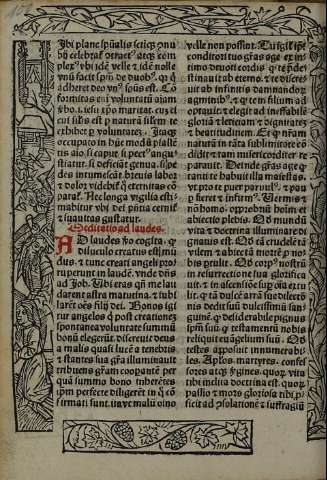 Ibi plane spūalis sctīcq; ōnu
bij celebraẗ cōtract⁹ atq; com
plex⁹ vbi idē velle ⁊ idē nolle
vnū facit spm̄ de duob⁹. qr q̄
adheret deo vn⁹ spūs est. Cō
formitas em̄ volūtatū aīam
vbo. i. iesu xp̄o maritat. cui ⁊
cui silis est p naturā silem se
exhibet p volūtatez. Itaq;
occupato in huc modū piasse
tis aīo, si capit⁹ is pect⁹ angu
stiatur. si deficiāt genua. si pe
des intumescāt. brevis labor
⁊ dolor videbit q̄ eternitas cō
parat. Nec longa vigilia esti
mabitur vbi dei pn̄tia cernit
⁊ suavitas gustatur.
Meditatio ad laudes.
AD laudes v̄o cogita. q
diluculo creatiuo estimā
dus. ⁊ tunc creati angeli pro
ruperunt in laudē. vnde dn̄s
ad Iob. Vbi eras qn̄ me lau
darent astra matutina. ⁊ iubi
larēt oēs filij dei. Bonos igi
tur angelos q̄ post creationez
spontanea volūntate summū
bonū elegerūt. discrevit deus
a malis quasi lucē a tenebris
⁊ stantes sua grā illuminauit
tribuens grāam cooperātē per
quā summo bono inherētes
ipm perfecte diligerēt in q̄ cō
firmati sunt. ita vt malū oīno
velle non possint. Tu igit ipsi
conditori tuo grās age ex in
timo cordi cordis. q te pde
stinauit ab eterno. ⁊ te discre
uit ab infinitis damnandorū
agminib⁹. ⁊ q te in filium ad
optauit. ⁊ elegit ad ineffabilē
gloriā ⁊ letitiam ⁊ dignitatē
⁊ beatitudinem. Et q nr̄am
naturā in tāta sublimitate cō
didit ⁊ tam misericorditer re
parauit. Deinde grās age q
tanti te habuit illa maiestas.
vt pro te puer paruul⁹. ⁊ pau
p fieret ⁊ infirm⁹. Vermis ⁊
nō homo. opprobriū hoīm et
abiectio plebis. Qd mundū
vita ⁊ doctrina illuminare di
gnatus est. Qd tā crudelē tā
vilem ⁊ abiectā morē p no
bis ptulit. Qd corp⁹ nostrū
in resurrectione sua glorifica
uit. ⁊ in ascensiōe sup oīa extu
lit. q tā dulcē arrā sue dilectio
nis dedit suū dulcissimū san
guinē q̄ delectabile pignus
spm̄ suū q̄ testamentū nobis
reliquit evangelium suū. Qd
testes apposuit innumerabi
les. Aplos. martyres. confes
sores atq; v̄gines. quor̄ vita
tibi inclita doctrina est. quor̄
passio ⁊ mors gloriosa tibi p
ficit ad cōsolationē ⁊ suffragiū